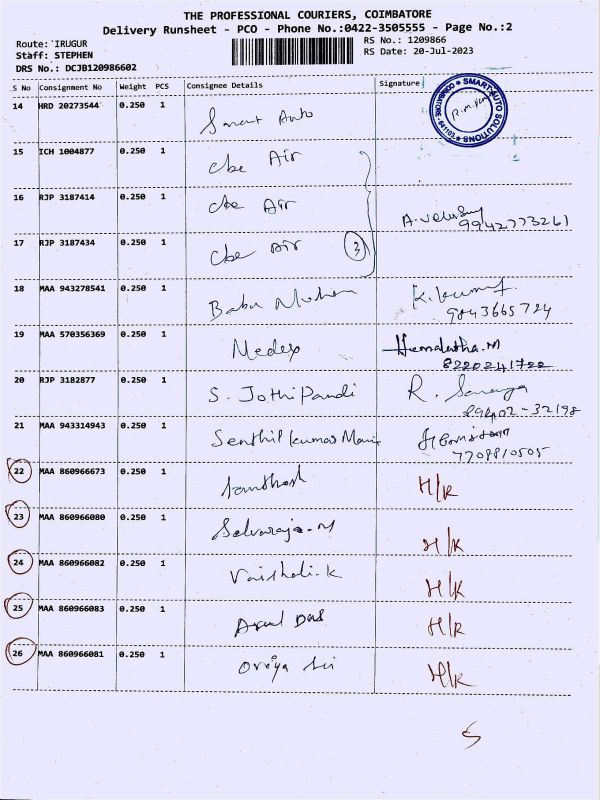 THE PROFESSIONAL COURIERS, COIMBATORE
Delivery Runsheet - PCO - Phone No.:0422-3505555 - Page No.:2
Route: IRUGUR
RS No.: 1209866
Staff: STEPHEN
RS Date: 20-Jul-2023
DRS No.: DCJB120986602
S No Consignment No Weight PCS Consignee Details Signature
14 HRD 20273544 0.250 1 Smart Auto
SMART AUTO SOLUTIONS * COIMBATORE - 641103 *
15 ICH 1004877 0.250 1 Cbe Air
16 RJP 3187414 0.250 1 Cbe Air
9942773261
17 RJP 3187434 0.250 1 Cbe Air 3
18 MAA 943278541 0.250 1 Babu Mohan K. Kumar
9843665724
19 MAA 570356369 0.250 1 Medex Hemalatha.M
8220241722
20 RJP 3182877 0.250 1 S. Jothi Pandi R.
02-32198
21 MAA 943314943 0.250 1 Senthil Kumar Mani
7708810505
22 MAA 860966673 0.250 1 Santhosh H/K
23 MAA 860966080 0.250 1 Selvaraja.M H/K
24 MAA 860966082 0.250 1 Vaishali.K H/K
25 MAA 860966083 0.250 1 Arul Das H/K
26 MAA 860966081 0.250 1 Oviya Sri H/K